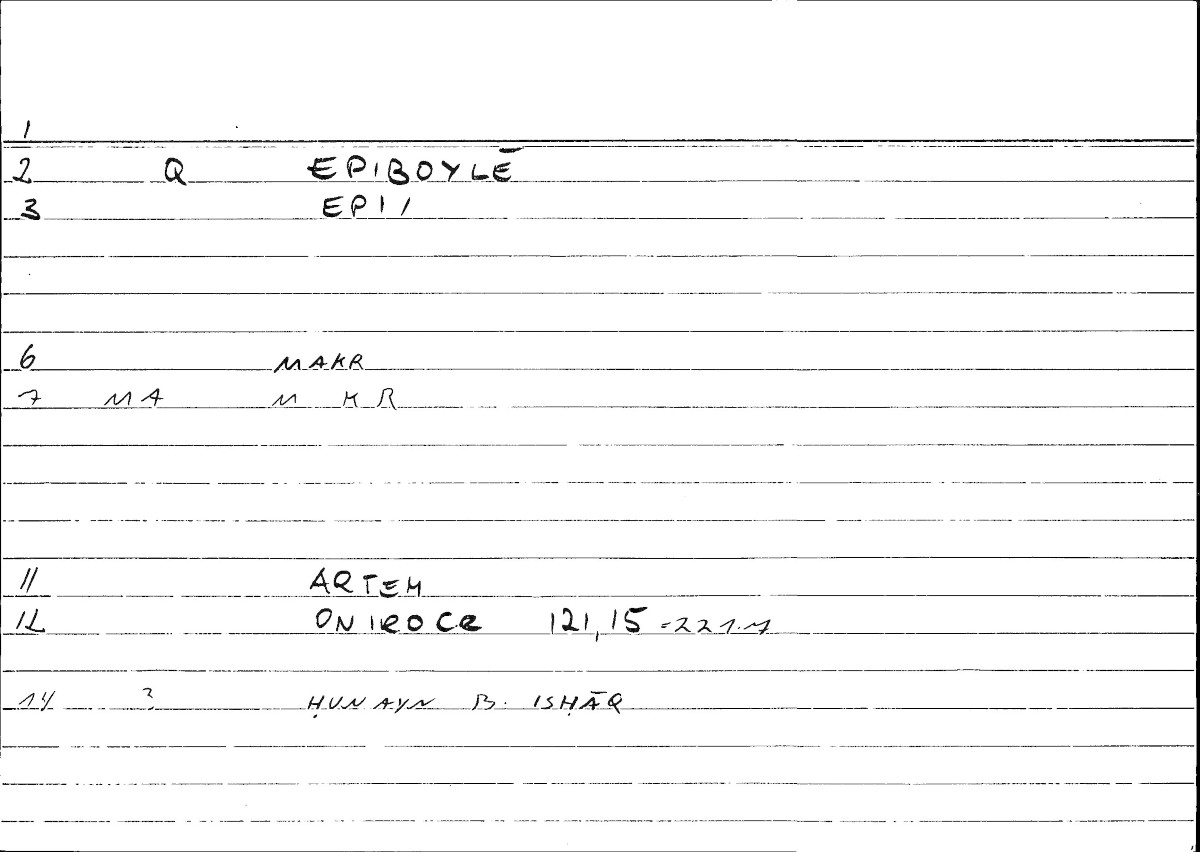 1
2 Q EPIBOYLĒ
3 EPI /
6 MAKR
7 MA M K R
11 ARTEM
12 ONIROCR 121,15 = 221.7
14 ? ḤUNAYN B. ISḤĀQ